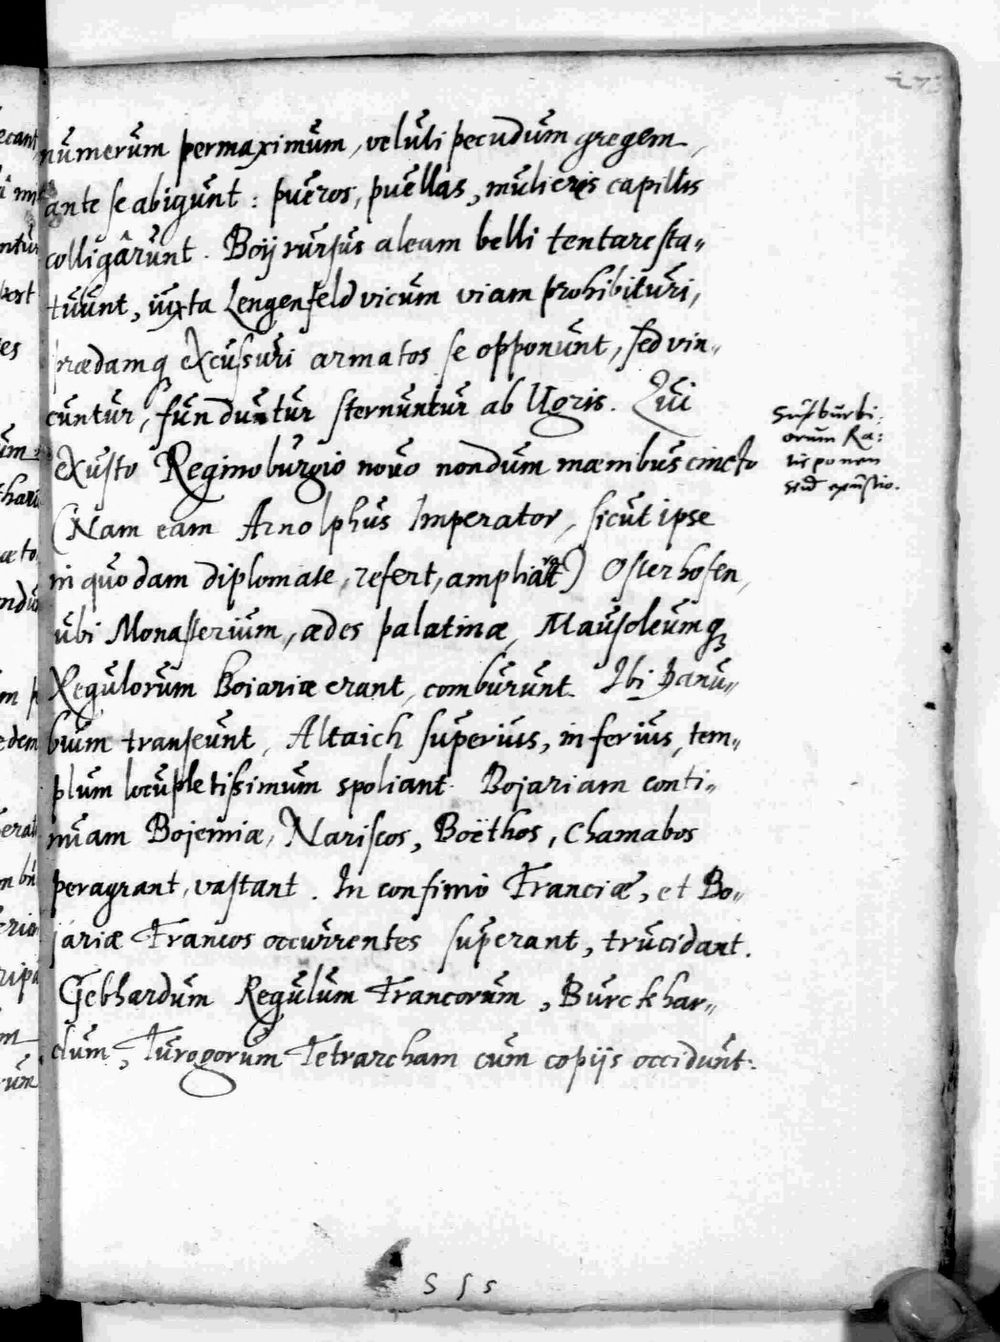 273
numerum permaximum, veluti pecudum gregem,
ante se abigunt: pueros, puellas, mulieres capillis
colligârunt. Boij rursus aleam belli tentare sta„
tuunt, iuxta Lengenfeld vicum viam prohibituri,
prædamq excussuri armatos se opponunt, sed vin„
cuntur, funduntur sternuntur ab Ugris. Qui
exusto Reginoburgio novo nondum mænibus cincto
(Nam eam Arnolphus Imperator, sicut ipse
in quodam diplomate, refert, ampliarat) Osterhofen,
ubi Monasterium, ædes palatinæ, Mausoleumq
Regulorum Boiariæ erant, comburunt. Ibi Danu„
bium transeunt, Altaich superius, inferius, tem„
plum locupletissimum spoliant. Bojariam conti„
nuam Bojemiæ, Nariscos, Boëthos, Chamabos
peragrant, vastant. In confinio Franciæ, et Bo„
jariæ Francos occurrentes superant, trucidant.
Gebhardum Regulum Francorum, Burckhar„
dum, Turogorum Tetrarcham cum copijs occidunt.
Suburbi:
orum Ra:
tisponen
sium exustio.
S s s